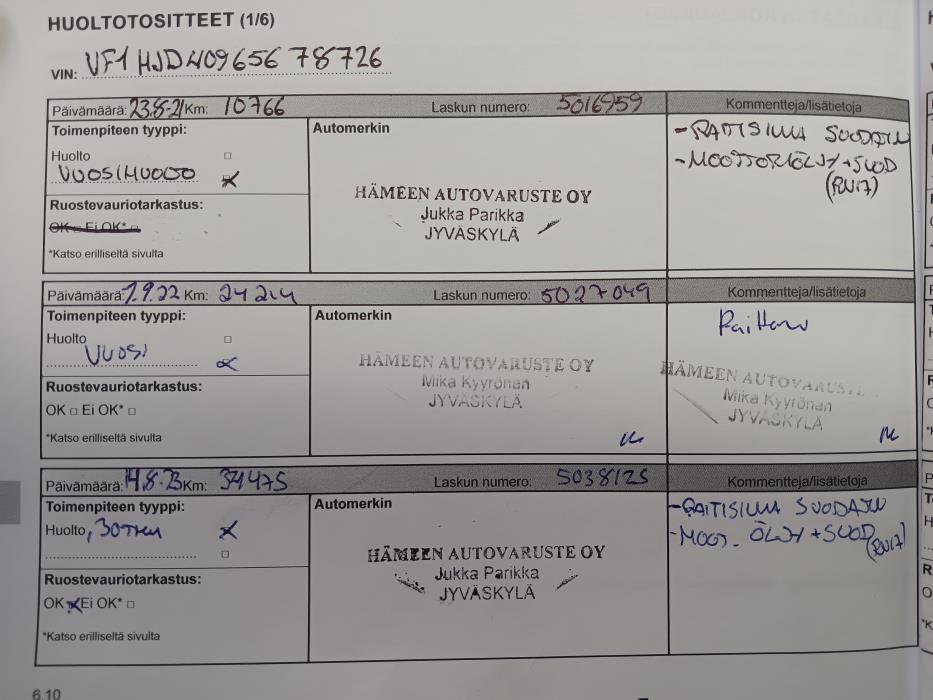 HUOLTOTOSITTEET (1/6)
VIN: VF1HJD40965678726
Päivämäärä: 23.8.21 Km: 10766 Laskun numero: 5016959 Kommentteja/lisätietoja
Toimenpiteen tyyppi: Automerkin
- RAITISILMA SUODATIN
Huolto □
- MOOTTORIÖLJY + SUOD
VUOSIHUOLTO
(RN17)
Ruostevauriotarkastus:
HÄMEEN AUTOVARUSTE OY
Jukka Parikka
OK Ei OK* □
JYVÄSKYLÄ
*Katso erilliseltä sivulta
Päivämäärä: 1.9.22 Km: 24214 Laskun numero: 5027049 Kommentteja/lisätietoja
Toimenpiteen tyyppi: Automerkin
Huolto □
VUOSI
HÄMEEN AUTOVARUSTE OY
Mika Kyyrönen
JYVÄSKYLÄ
HÄMEEN AUTOVARUSTE
Mika Kyyrönen
JYVÄSKYLÄ
Ruostevauriotarkastus:
OK □ Ei OK* □
*Katso erilliseltä sivulta
Päivämäärä: 14.8.23 Km: 37475 Laskun numero: 5038125 Kommentteja/lisätietoja
Toimenpiteen tyyppi: Automerkin
- RAITISILMA SUODATIN
Huolto, 30TKM
- MOOT. ÖLJY + SUOD
(RN17)
□
HÄMEEN AUTOVARUSTE OY
Jukka Parikka
JYVÄSKYLÄ
Ruostevauriotarkastus:
OK Ei OK* □
*Katso erilliseltä sivulta
6.10